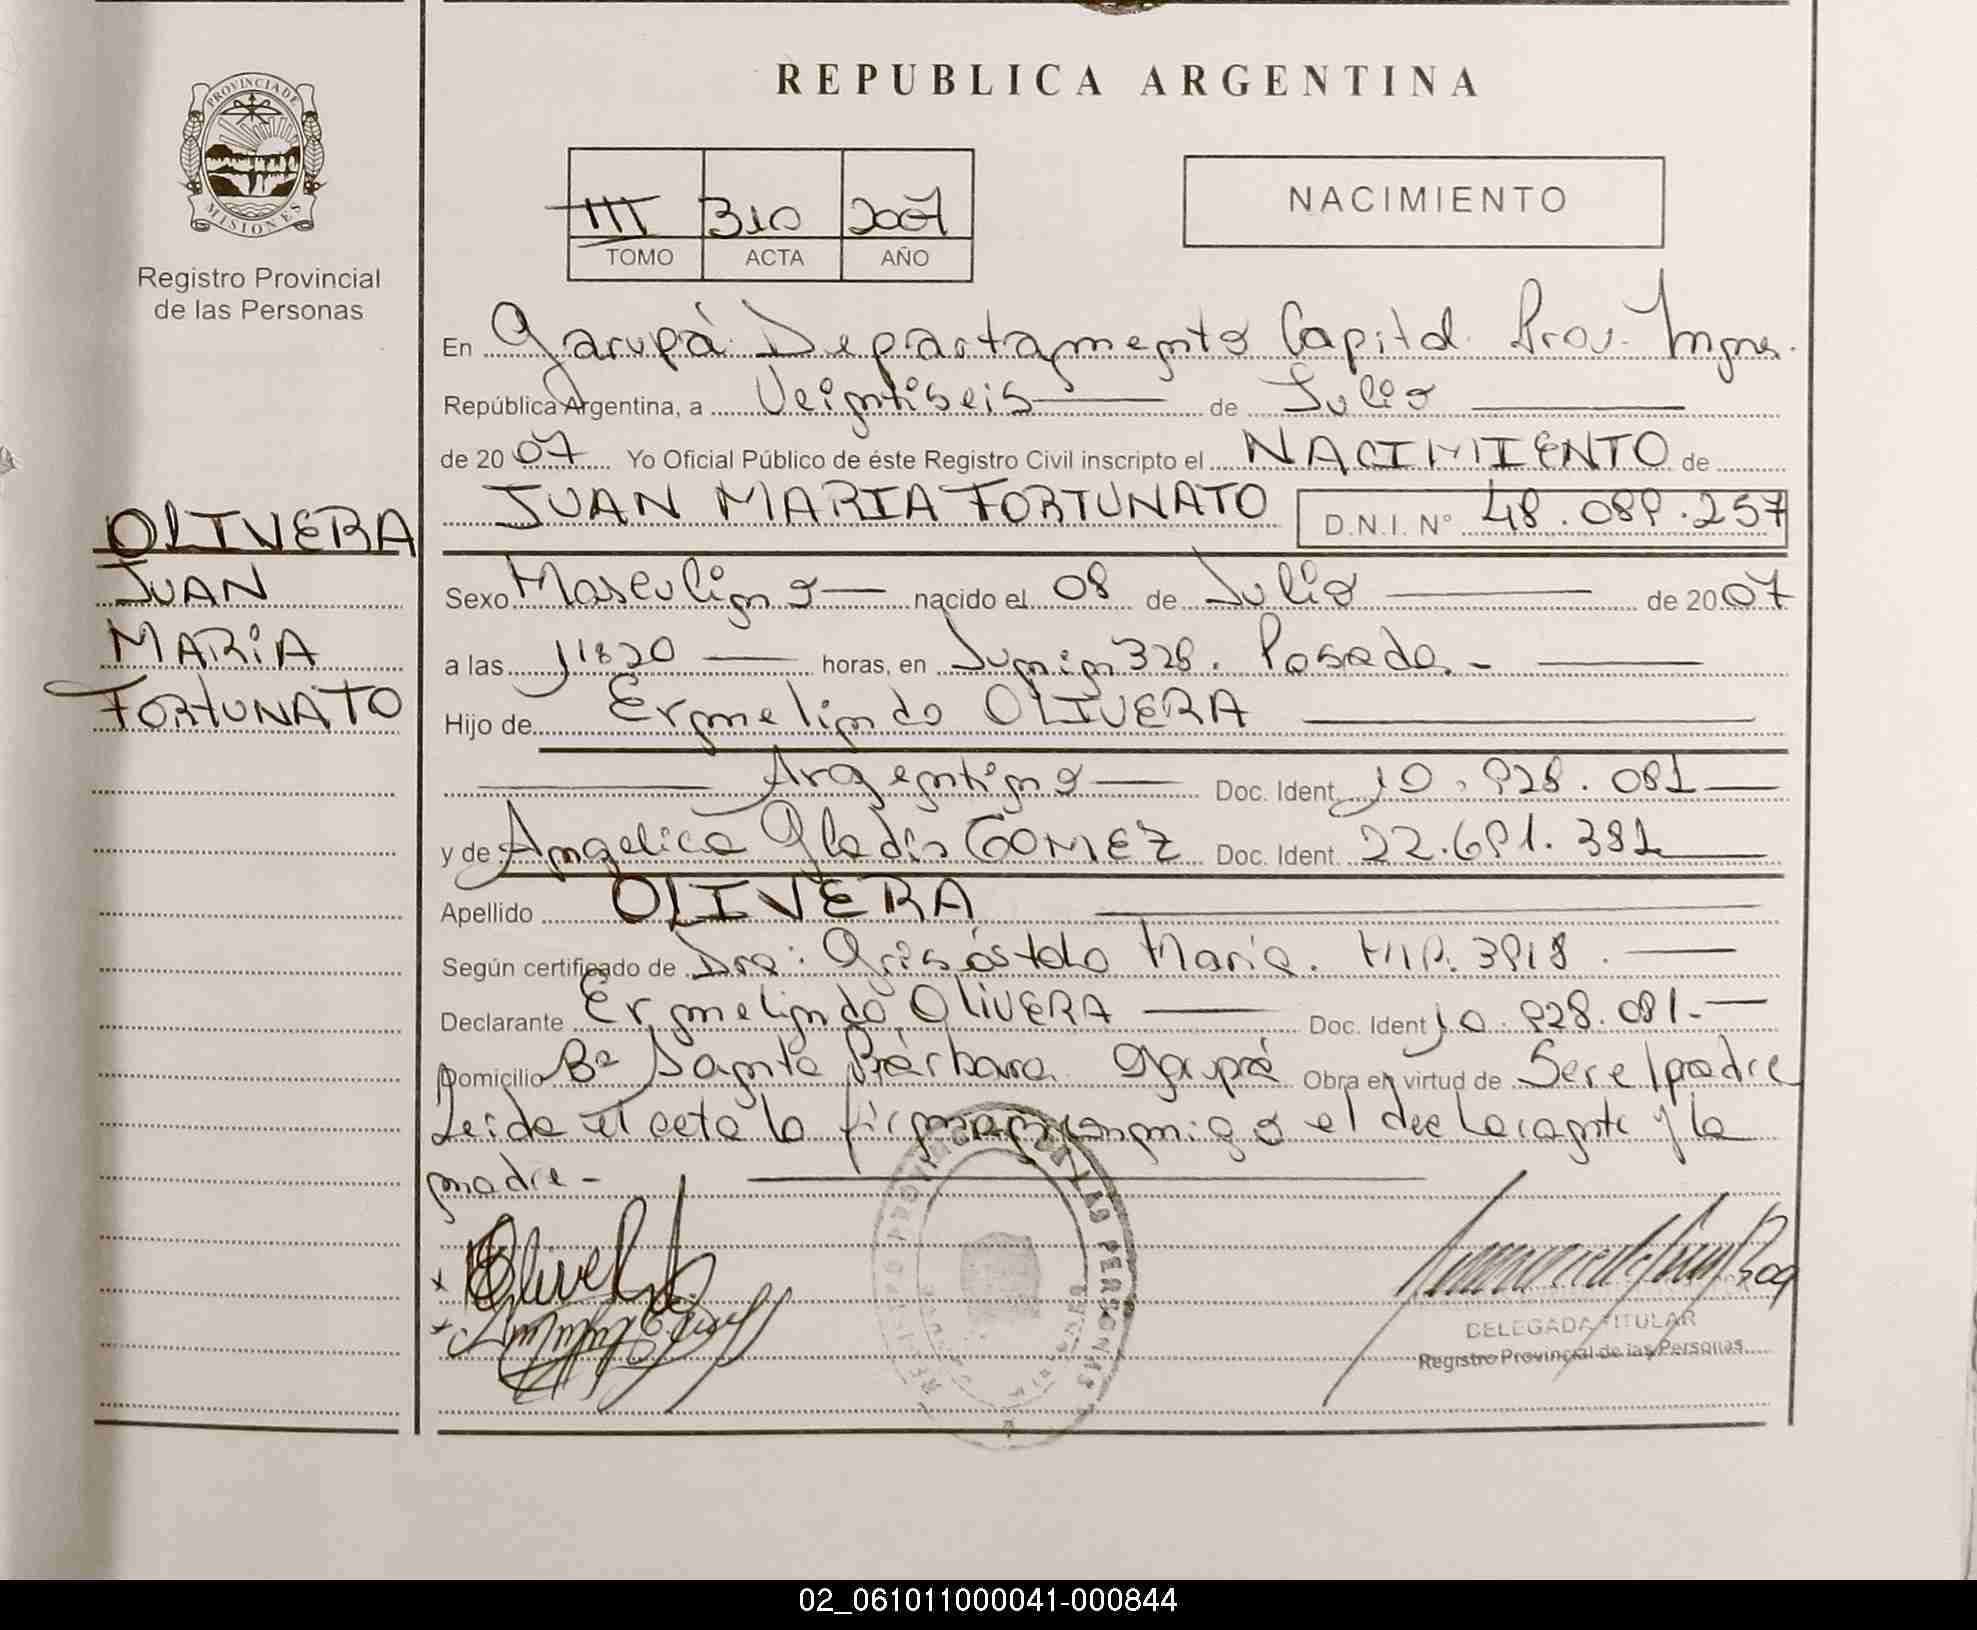 REPUBLICA ARGENTINA
PROVINCIA DE
MISIONES
Registro Provincial
de las Personas
III 310 2007
TOMO ACTA AÑO
NACIMIENTO
En Garupá Departamento Capital Prov. Mnes.
República Argentina, a Veintiseis de Julio
de 2007 Yo Oficial Público de éste Registro Civil inscripto el NACIMIENTO de
JUAN MARIA FORTUNATO D.N.I. Nº 48.089.257
OLIVERA
JUAN
MARIA
FORTUNATO
Sexo Masculino nacido el 08 de Julio de 2007
a las 11:20 horas, en Junin 328. Posadas-
Hijo de Ermelindo OLIVERA
Argentino Doc. Ident. 10.928.081
y de Angelica Gladis GOMEZ Doc. Ident. 22.691.381
Apellido OLIVERA
Según certificado de Dra: María. M.P. 3918.
Declarante Ermelindo OLIVERA Doc. Ident 10.928.081.-
Domicilio Bº Santa Bárbara Garupá Obra en virtud de Ser el padre
Leida el acta la firman conmigo el declarante y la
madre-
REGISTRO PROVINCIAL DE LAS PERSONAS
DELEGADA TITULAR
Registro Provincial de las Personas
02_061011000041-000844